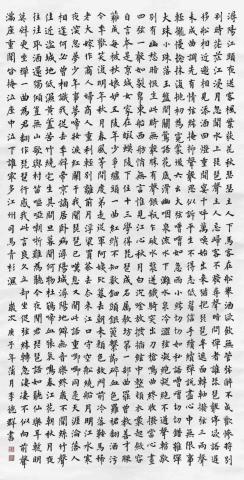 潯陽江頭夜送客楓葉荻花秋瑟瑟主人下馬客在船舉酒欲飲無管弦醉不成歡慘將別
別時茫茫江浸月忽聞水上琵琶聲主人忘歸客不發尋聲暗問彈者誰琵琶聲停欲語遲
移船相近邀相見添酒回燈重開宴千呼萬喚始出來猶抱琵琶半遮面轉軸撥弦三兩聲
未成曲調先有情弦弦掩抑聲聲思似訴平生不得志低眉信手續續彈說盡心中無限事
輕攏慢撚抹復挑初為霓裳後六幺大弦嘈嘈如急雨小弦切切如私語嘈嘈切切錯雜彈
大珠小珠落玉盤間關鶯語花底滑幽咽泉流冰下難冰泉冷澀弦凝絕凝絕不通聲暫歇
別有幽愁暗恨生此時無聲勝有聲銀瓶乍破水漿迸鐵騎突出刀槍鳴曲終收撥當心畫
四弦一聲如裂帛東船西舫悄無言唯見江心秋月白沉吟放撥插弦中整頓衣裳起斂容
自言本是京城女家在蝦蟆陵下住十三學得琵琶成名屬教坊第一部曲罷曾教善才服
妝成每被秋娘妒五陵年少爭纏頭一曲紅綃不知數鈿頭銀篦擊節碎血色羅裙翻酒污
今年歡笑復明年秋月春風等閑度弟走從軍阿姨死暮去朝來顏色故門前冷落鞍馬稀
老大嫁作商人婦商人重利輕別離前月浮梁買茶去去來江口守空船繞船月明江水寒
夜深忽夢少年事夢啼妝淚紅闌干我聞琵琶已嘆息又聞此語重唧唧同是天涯淪落人
相逢何必曾相識我從去年辭帝京謫居臥病潯陽城潯陽地僻無音樂終歲不聞絲竹聲
住近湓城地低濕黃蘆苦竹繞宅生其間旦暮聞何物杜鵑啼血猿哀鳴春江花朝秋月夜
往往取酒還獨傾豈無山歌與村笛嘔啞嘲哳難為聽今夜聞君琵琶語如聽仙樂耳暫明
莫辭更坐彈一曲為君翻作琵琶行感我此言良久立卻坐促弦弦轉急淒淒不似向前聲
滿座重聞皆掩泣座中泣下誰最多江州司馬青衫濕
庚子年蒲月李德群書